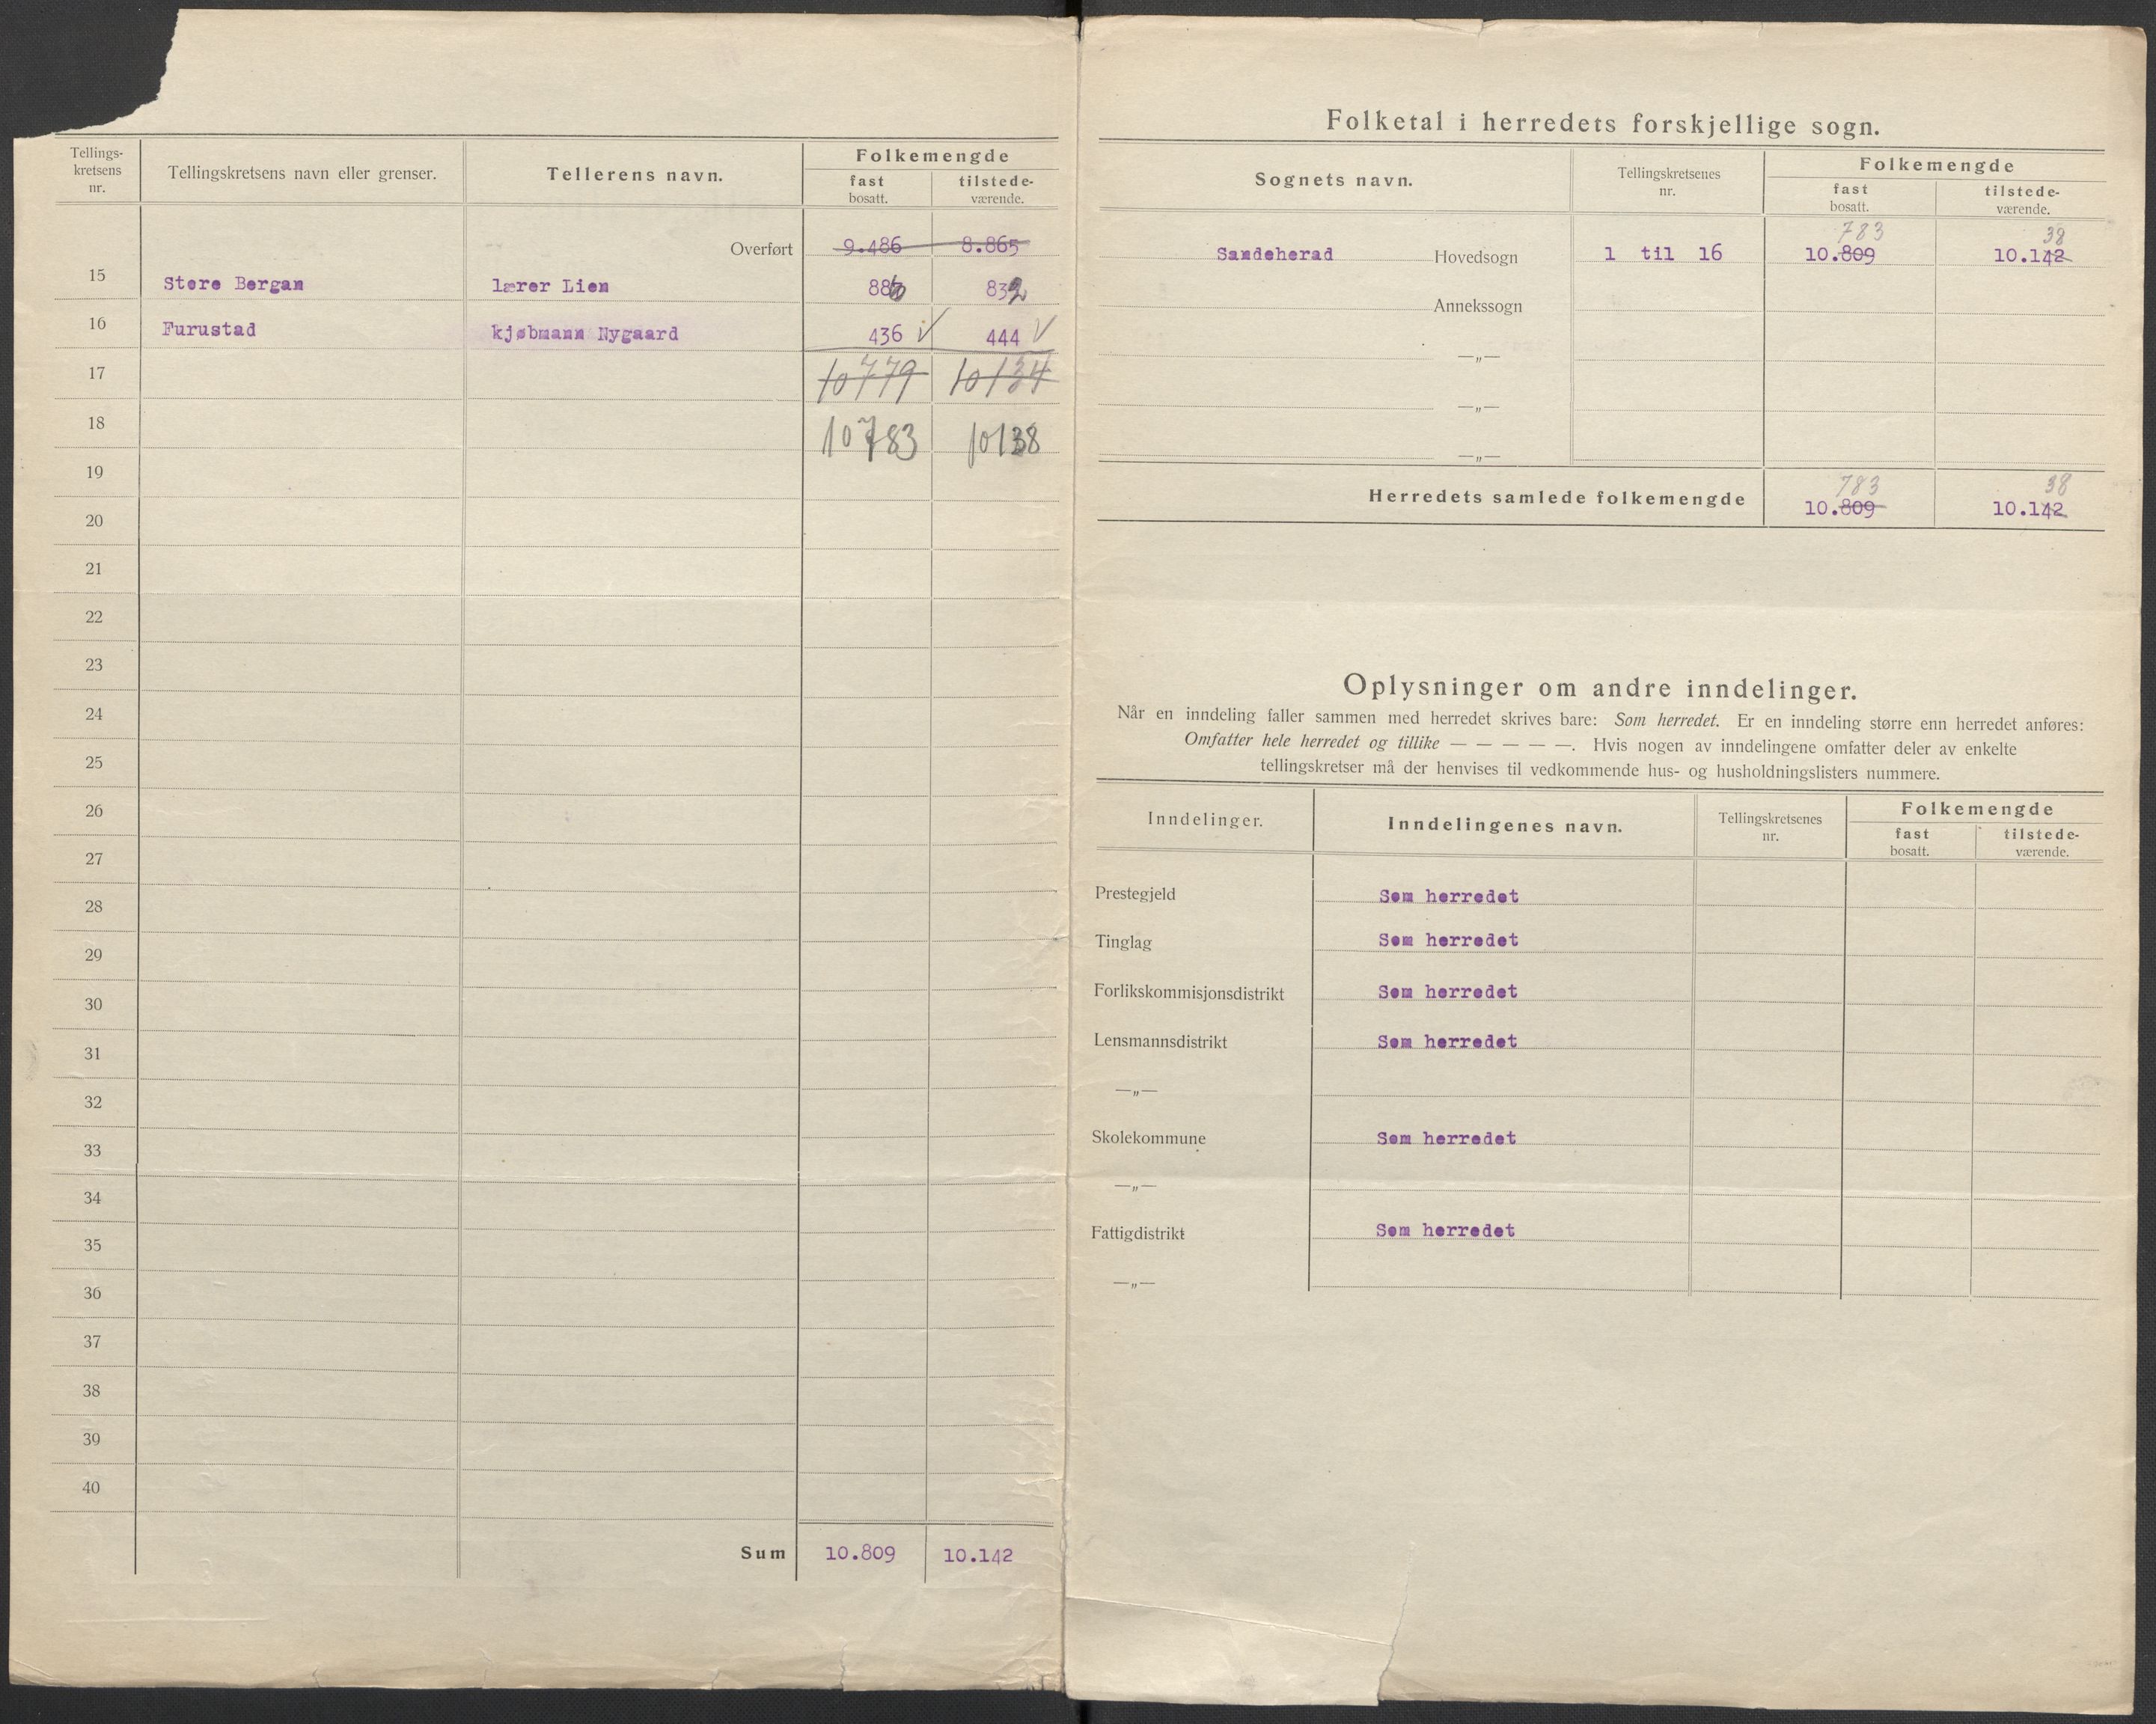 Tellings-
kretsens
nr.
Tellingskretsens navn eller grenser.
Tellerens navn.
Folkemengde
fast
bosatt.
tilstede-
værende.
Overført 9.486 8.865
15 Store Bergan lærer Lien 886 832
16 Furustad kjøbmann Nygaard 436 V 444 V
17 10779 10134
18 10783 10138
19
20
21
22
23
24
25
26
27
28
29
30
31
32
33
34
35
36
37
38
39
40
Sum 10.809 10.142
Folketal i herredets forskjellige sogn.
Sognets navn.
Tellingskretsenes
nr.
Folkemengde
fast
bosatt.
tilstede-
værende.
783 38
Sandeherad Hovedsogn 1 til 16 10.809 10.142
Annekssogn
—„—
—„—
—„—
783 38
Herredets samlede folkemengde 10.809 10.142
Oplysninger om andre inndelinger.
Når en inndeling faller sammen med herredet skrives bare: Som herredet. Er en inndeling større enn herredet anføres:
Omfatter hele herredet og tillike — — — — —. Hvis nogen av inndelingene omfatter deler av enkelte
tellingskretser må der henvises til vedkommende hus- og husholdningslisters nummere.
Inndelinger.
Inndelingenes navn.
Tellingskretsenes
nr.
Folkemengde
fast
bosatt.
tilstede-
værende.
Prestegjeld Som herredet
Tinglag Som herredet
Forlikskommisjonsdistrikt Som herredet
Lensmannsdistrikt Som herredet
—„—
Skolekommune Som herredet
—„—
Fattigdistrikt Som herredet
—„—